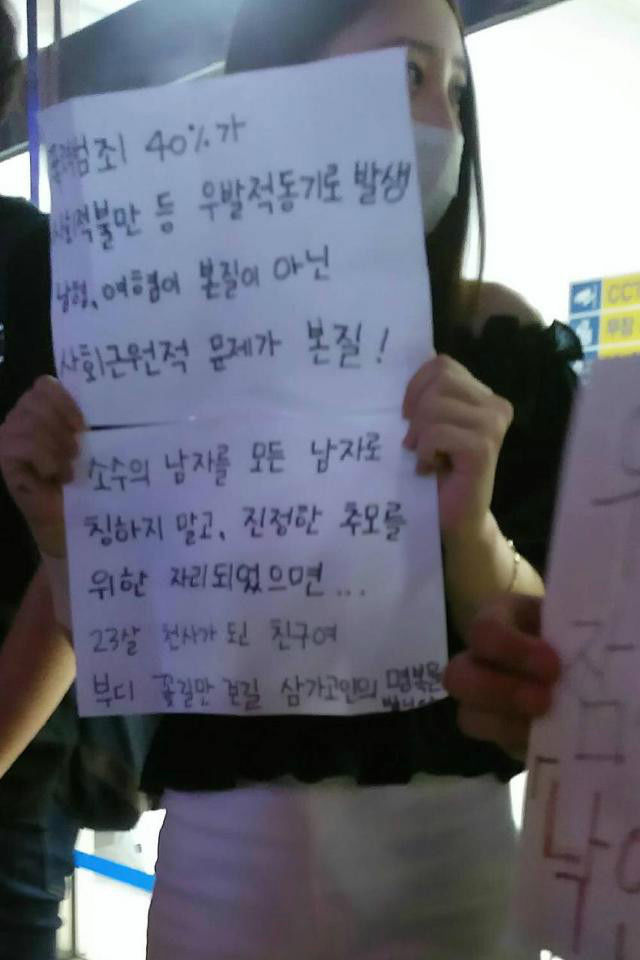 범죄 40%가
사회적불만 등 우발적동기로 발생
남혐, 여혐이 본질이 아닌
사회근원적 문제가 본질!
소수의 남자를 모든 남자로
칭하지 말고, 진정한 추모를
위한 자리되었으면...
23살 천사가 된 친구여
부디 꽃길만 걷길 삼가고인의 명복을
CCT
무장